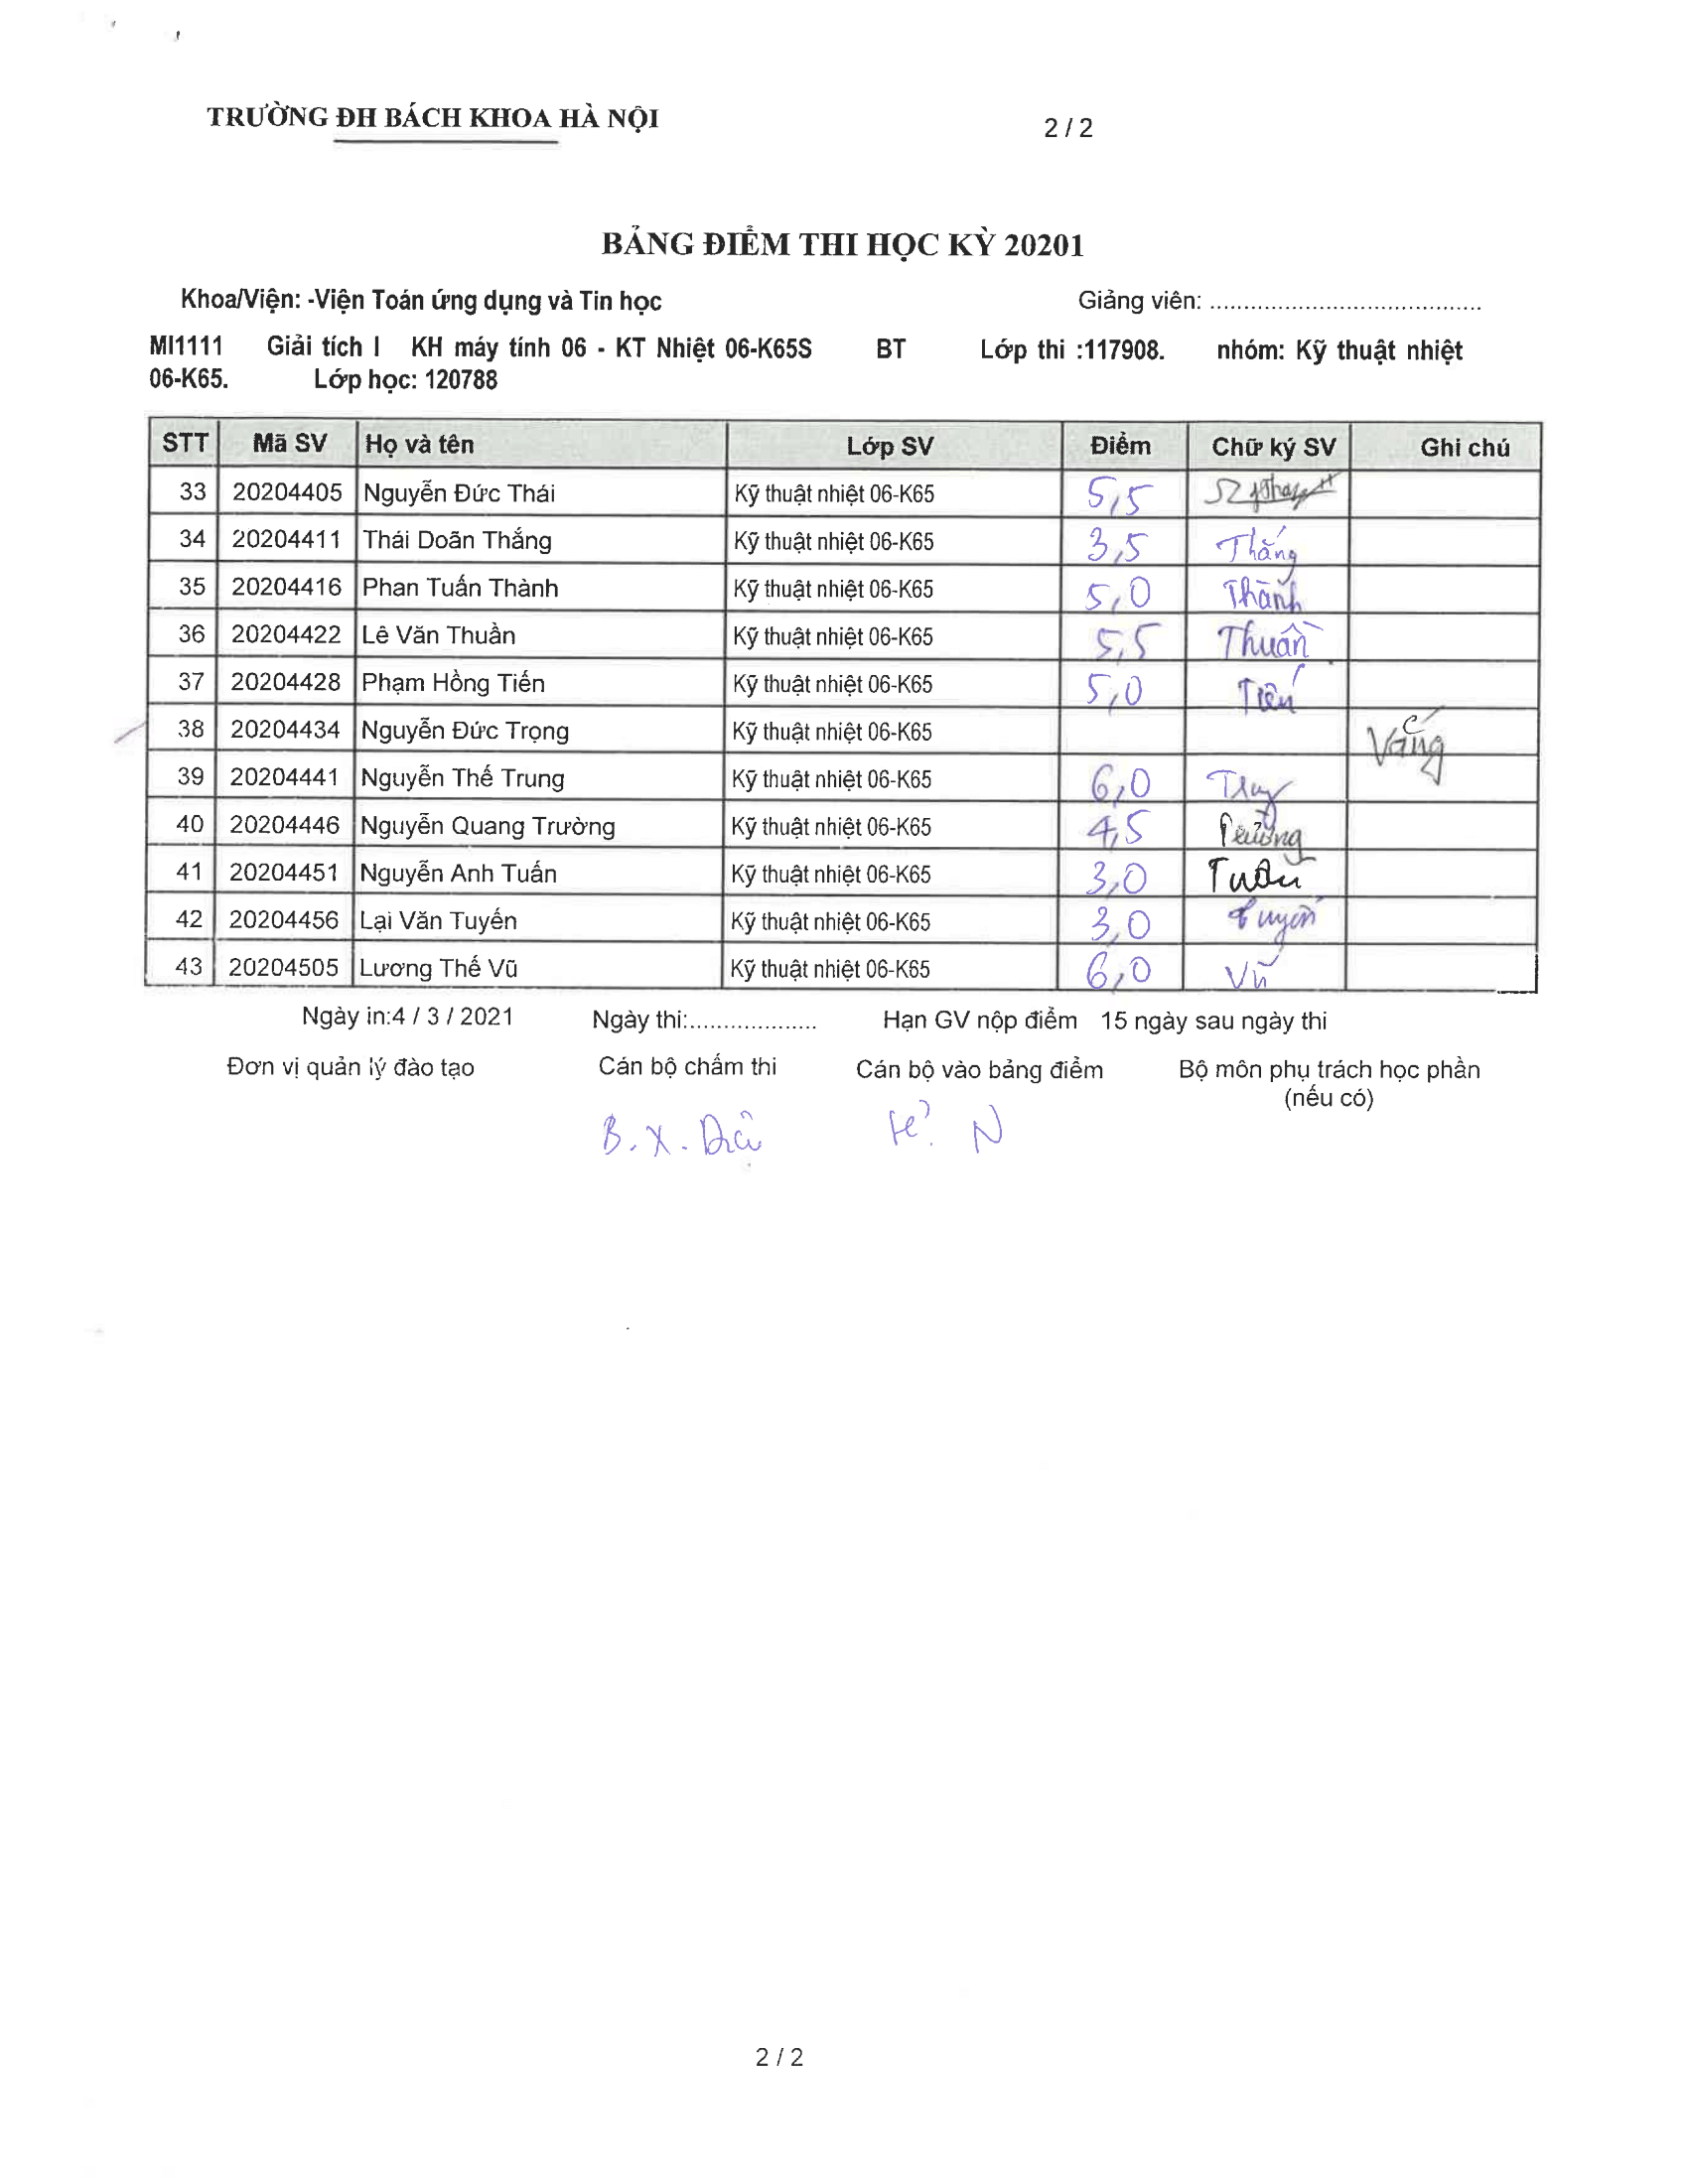 TRƯỜNG ĐH BÁCH KHOA HÀ NỘI 2 / 2
BẢNG ĐIỂM THI HỌC KỲ 20201
Khoa/Viện: -Viện Toán ứng dụng và Tin học Giảng viên: ........................................
MI1111 Giải tích I KH máy tính 06 - KT Nhiệt 06-K65S BT Lớp thi :117908. nhóm: Kỹ thuật nhiệt
06-K65. Lớp học: 120788
STT Mã SV Họ và tên Lớp SV Điểm Chữ ký SV Ghi chú
33 20204405 Nguyễn Đức Thái Kỹ thuật nhiệt 06-K65 5,5
34 20204411 Thái Doãn Thắng Kỹ thuật nhiệt 06-K65 3,5 Thắng
35 20204416 Phan Tuấn Thành Kỹ thuật nhiệt 06-K65 5,0 Thành
36 20204422 Lê Văn Thuần Kỹ thuật nhiệt 06-K65 5,5 Thuần
37 20204428 Phạm Hồng Tiến Kỹ thuật nhiệt 06-K65 5,0 Tiến
38 20204434 Nguyễn Đức Trọng Kỹ thuật nhiệt 06-K65 Vắng
39 20204441 Nguyễn Thế Trung Kỹ thuật nhiệt 06-K65 6,0
40 20204446 Nguyễn Quang Trường Kỹ thuật nhiệt 06-K65 4,5 Trường
41 20204451 Nguyễn Anh Tuấn Kỹ thuật nhiệt 06-K65 3,0 Tuấn
42 20204456 Lại Văn Tuyến Kỹ thuật nhiệt 06-K65 3,0 Tuyến
43 20204505 Lương Thế Vũ Kỹ thuật nhiệt 06-K65 6,0 Vũ
Ngày in:4 / 3 / 2021 Ngày thi:................... Hạn GV nộp điểm 15 ngày sau ngày thi
Đơn vị quản lý đào tạo Cán bộ chấm thi Cán bộ vào bảng điểm Bộ môn phụ trách học phần
(nếu có)
B. X. N
2 / 2